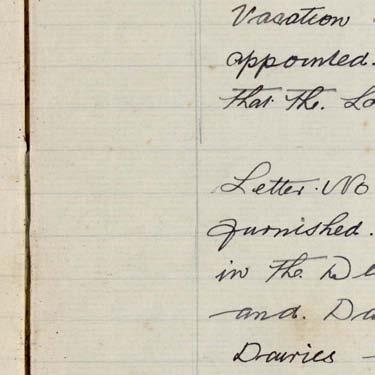 Vacation
appointed.
that the. L
Letter. No
furnished.
in the De
and. Da
Dairies